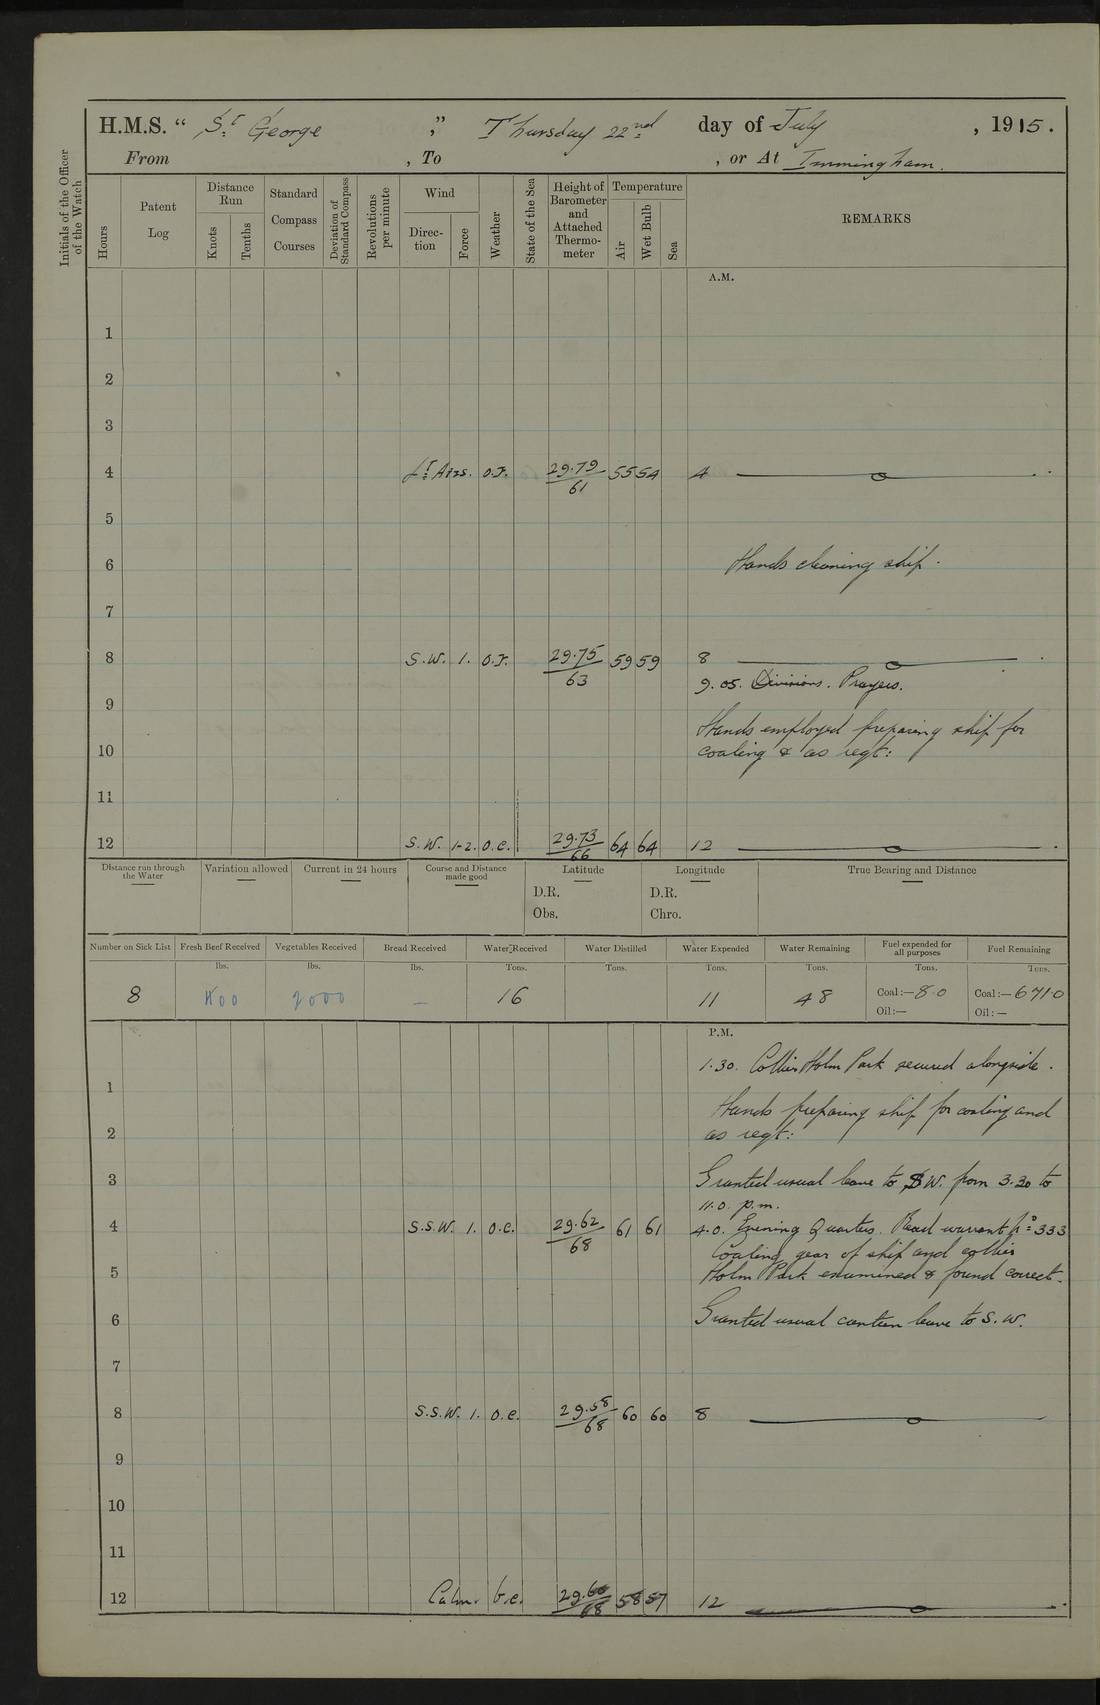 H.M.S. “ St George ,” Thursday 22nd day of July , 1915.
From , To , or At Immingham.
Initials of the Officer of the Watch
Hours
Patent Log
Distance Run
Knots
Tenths
Standard Compass Courses
Deviation of Standard Compass
Revolutions per minute
Wind
Direction
Force
Weather
State of the Sea
Height of Barometer and Attached Thermometer
Temperature
Air
Wet Bulb
Sea
REMARKS
A.M.
1
2
3
4 Lt Airs. 29.79/61 55 54 4
5
6 Hands cleaning ship.
7
8 S.W. 1. 29.75/63 59 59 8
9.05. Divisions. Prayers.
9
Hands employed preparing ship for
10 coaling & as reqt:
11
12 S.W. 1-2. o.c. 29.73/66 64 64 12
Distance run through the Water
Variation allowed
Current in 24 hours
Course and Distance made good
Latitude
D.R.
Obs.
Longitude
D.R.
Chro.
True Bearing and Distance
Number on Sick List Fresh Beef Received Vegetables Received Bread Received Water Received Water Distilled Water Expended Water Remaining Fuel expended for all purposes Fuel Remaining
lbs. lbs. lbs. Tons. Tons. Tons. Tons. Tons. Tons.
8 2000 – 16 11 48 Coal:— 8.0 Coal:— 671.0
Oil:— Oil:—
P.M.
1.30. Collier Holm Park secured alongside.
1
Hands preparing ship for coaling and
2 as reqt:
3 Granted usual leave to S.W. from 3.30 to
11.0. p.m.
4 S.S.W. 1. o.c. 29.62/68 61 61 4.0. Evening Quarters. Read warrant No 333
Coaling gear of ship and collier
5 Holm Park examined & found correct.
6 Granted usual canteen leave to S.W.
7
8 S.S.W. 1. o.c. 29.58/68 60 60 8
9
10
11
12 Calm. b.c. 29.60/68 58 57 12